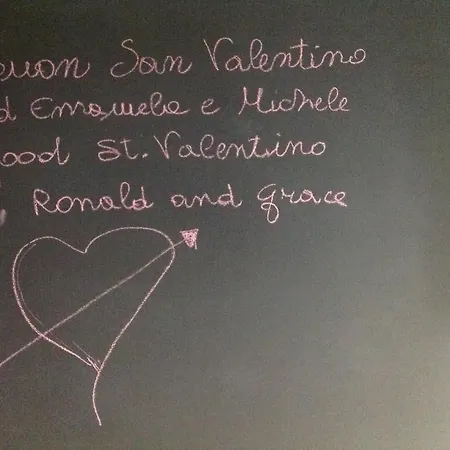 euon San Valentino
d Emanuela e Michele
ood St. Valentino
Ronald and Grace